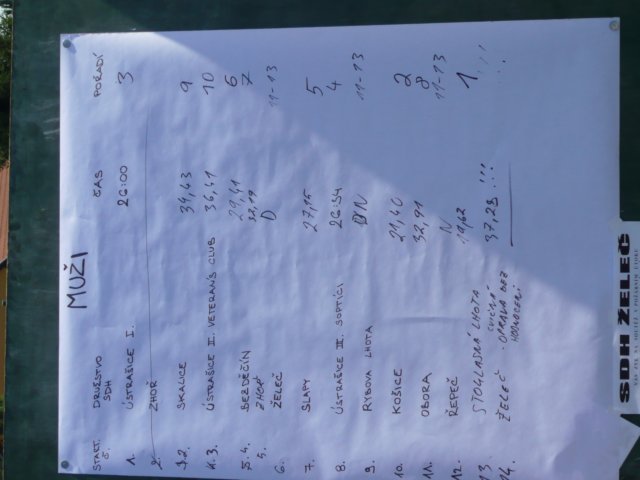 MUŽI
START. Č. DRUŽSTVO SDH ČAS POŘADÍ
1. ÚSTRAŠICE I. 26:00 3
2. ZHOŘ
2. SKALICE 34,43 9
3. ÚSTRAŠICE II. VETERANS CLUB 36,41 10
4. BEZDĚČÍN 29,41 6
5. ZHOŘ 32,19 7
6. ŽELEČ D 11-13
7. SLAPY 27,15 5
8. ÚSTRAŠICE III. SOPTÍCI 26:54 4
9. RYBOVA LHOTA N 11-13
10. KOŠICE 21,40 2
11. OBORA 32,91 8
12. ŘEPEČ N 11-13
13. STOKLASNÁ LHOTA 19,62 1 !!!
14. ŽELEČ - OPRAVA BEZ HODNOCENÍ 37,28 !!!
SDH ŽELEČ